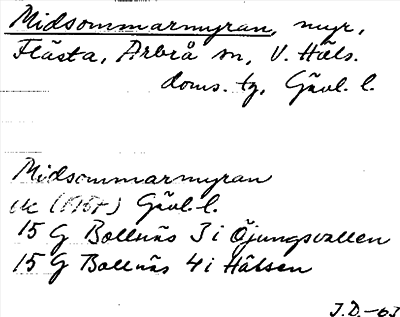 Midsommarmyran, myr,
Flästa, Arbrå sn, V. Häls.
doms. tg, Gävl. l.
Midsommarmyran
ek (1957) Gävl. l.
15 G Bollnäs 3 i Öjungsvallen
15 G Bollnäs 4 i Hälsen
J.D.-63